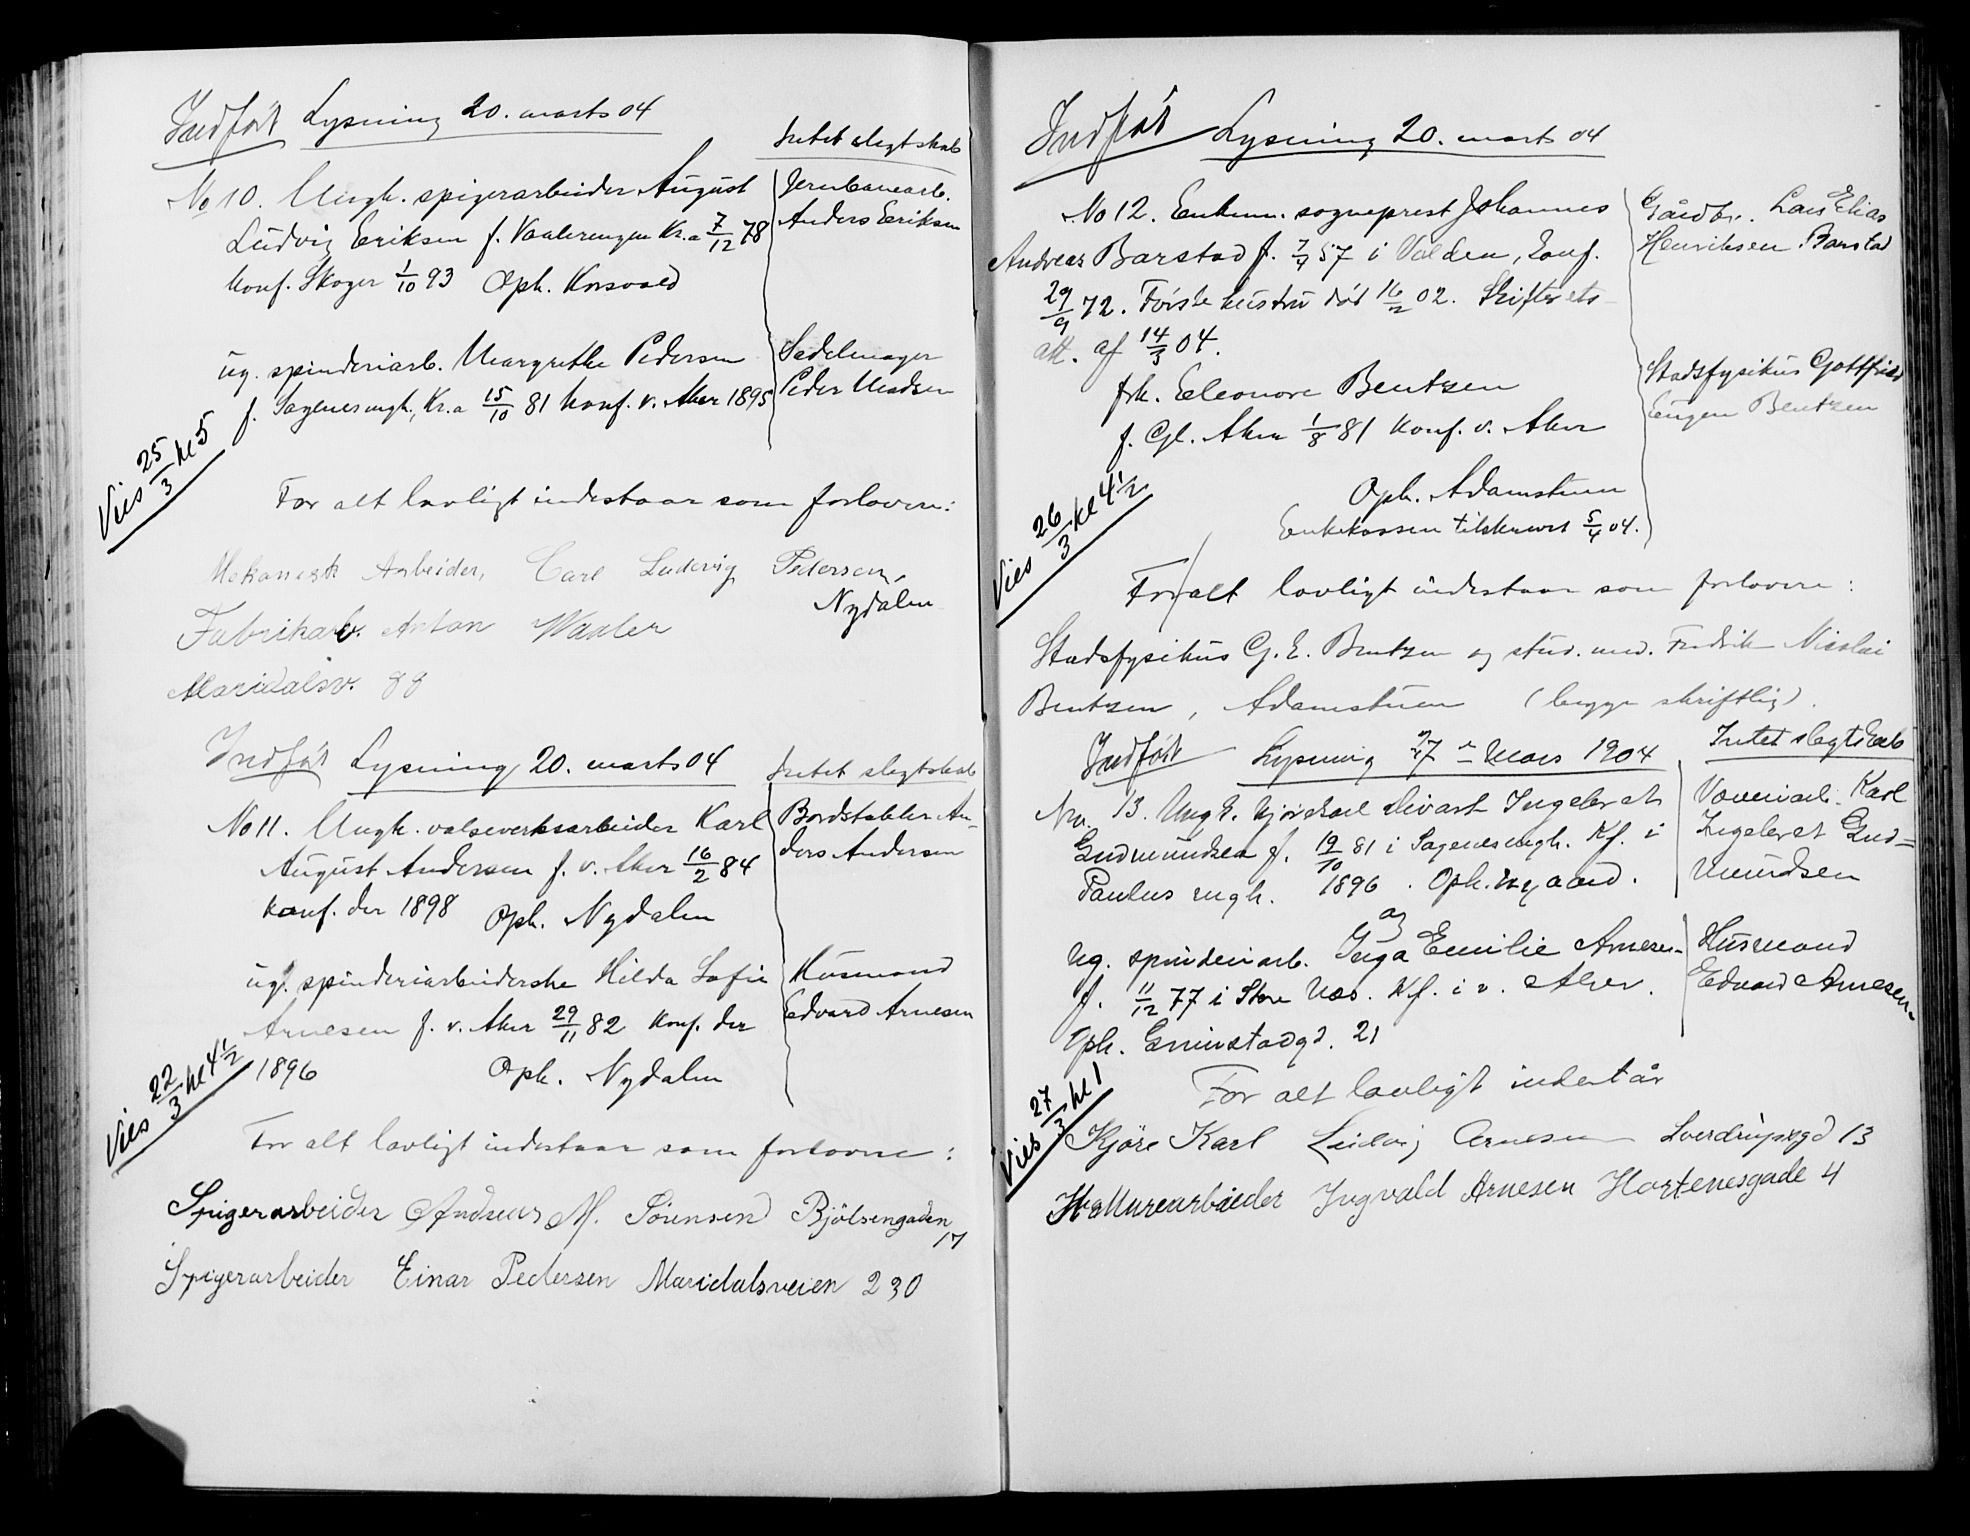 Indført Lysning 20. marts 04
Intet slegtskab
No 10. Ungk. spigerarbeider August
Ludvig Eriksen f. Vaalerengen Kr.a 7/12 78
Konf. Skoger 1/10 93 Oph. Korsvold
Jernbanearb.
Anders Eriksen
ug. spinderiarb. Margrethe Pedersen
f. Sagenes mgh., Kr.a 15/10 81 Konf. v. Aker 1895
Sadelmager
Peder Madsen
Vies 25/3 kl 5
For alt lovligt indestaar som forlovere:
Mekanisk Arbeider, Carl Ludvig Pedersen,
Nydalen
Fabrikarb. Anton Waaler
Maridalsv. 88
Indført Lysning 20. marts 04
Intet slegtskab
No 11. Ungk. valseverksarbeider Karl
August Andersen f. v. Aker 16/2 84
Konf. der 1898 Oph. Nydalen
Bordstabler An-
ders Andersen
ug. spinderiarbeiderske Hilda Sofie
Arnesen f. v. Aker 29/11 82 Konf. der
1896 Oph. Nydalen
Husmand
Edvard Arnesen
Vies 22/3 kl 4 1/2
For alt lovligt indestaar som forlovere:
Spigerarbeider Andreas M. Sørensen Bjølsengaden
17
Spigerarbeider Einar Pedersen Maridalsveien 230
Indført Lysning 20. marts 04
No 12. Enkem. sogneprest Johannes
Andreas Barstad f. 7/4 57 i Volden, Konf.
29/9 72. Første hustru død 16/2 02. Skifterets
att. af 14/3 04.
Gårdbr. Lars Elias
Henriksen Barstad
frk. Eleonore Bentzen
f. Gl. Aker 1/8 81 Konf. v. Aker
Oph. Adamstuen
Enkekassen tilskrevet 5/4 04.
Stadsfysikus Gottfried
Eugen Bentzen
Vies 26/3 kl 4 1/2
For alt lovligt indestaar som forlovere:
Stadsfysikus G. E. Bentzen og stud. med. Fredrik Nicolai
Bentzen, Adamstuen (begge skriftlig).
Indført Lysning 27 Mars 1904
Intet slegtskab
No. 13. Ungk. kjørekarl Sivart Ingebret
Gudmundsen f. 19/10 81 i Sagenes mgh. Kf. i
Paulus mgh. 1896. Oph. Nygaard.
Væveriarb. Karl
Ingebret Gud=
mundsen
og
ug. spinderiarb. Inga Emilie Arnesen
f. 11/12 77 i Store Næs. Kf. i v. Aker.
Oph. Grimstadgd. 21
Husmand
Edvard Arnesen
Vies 27/3 kl 1
For alt lovligt indestår
Kjøre Karl Ludvig Arnesen Sverdrupsgd 13
Ingvald Arnesen Hortensgade 4